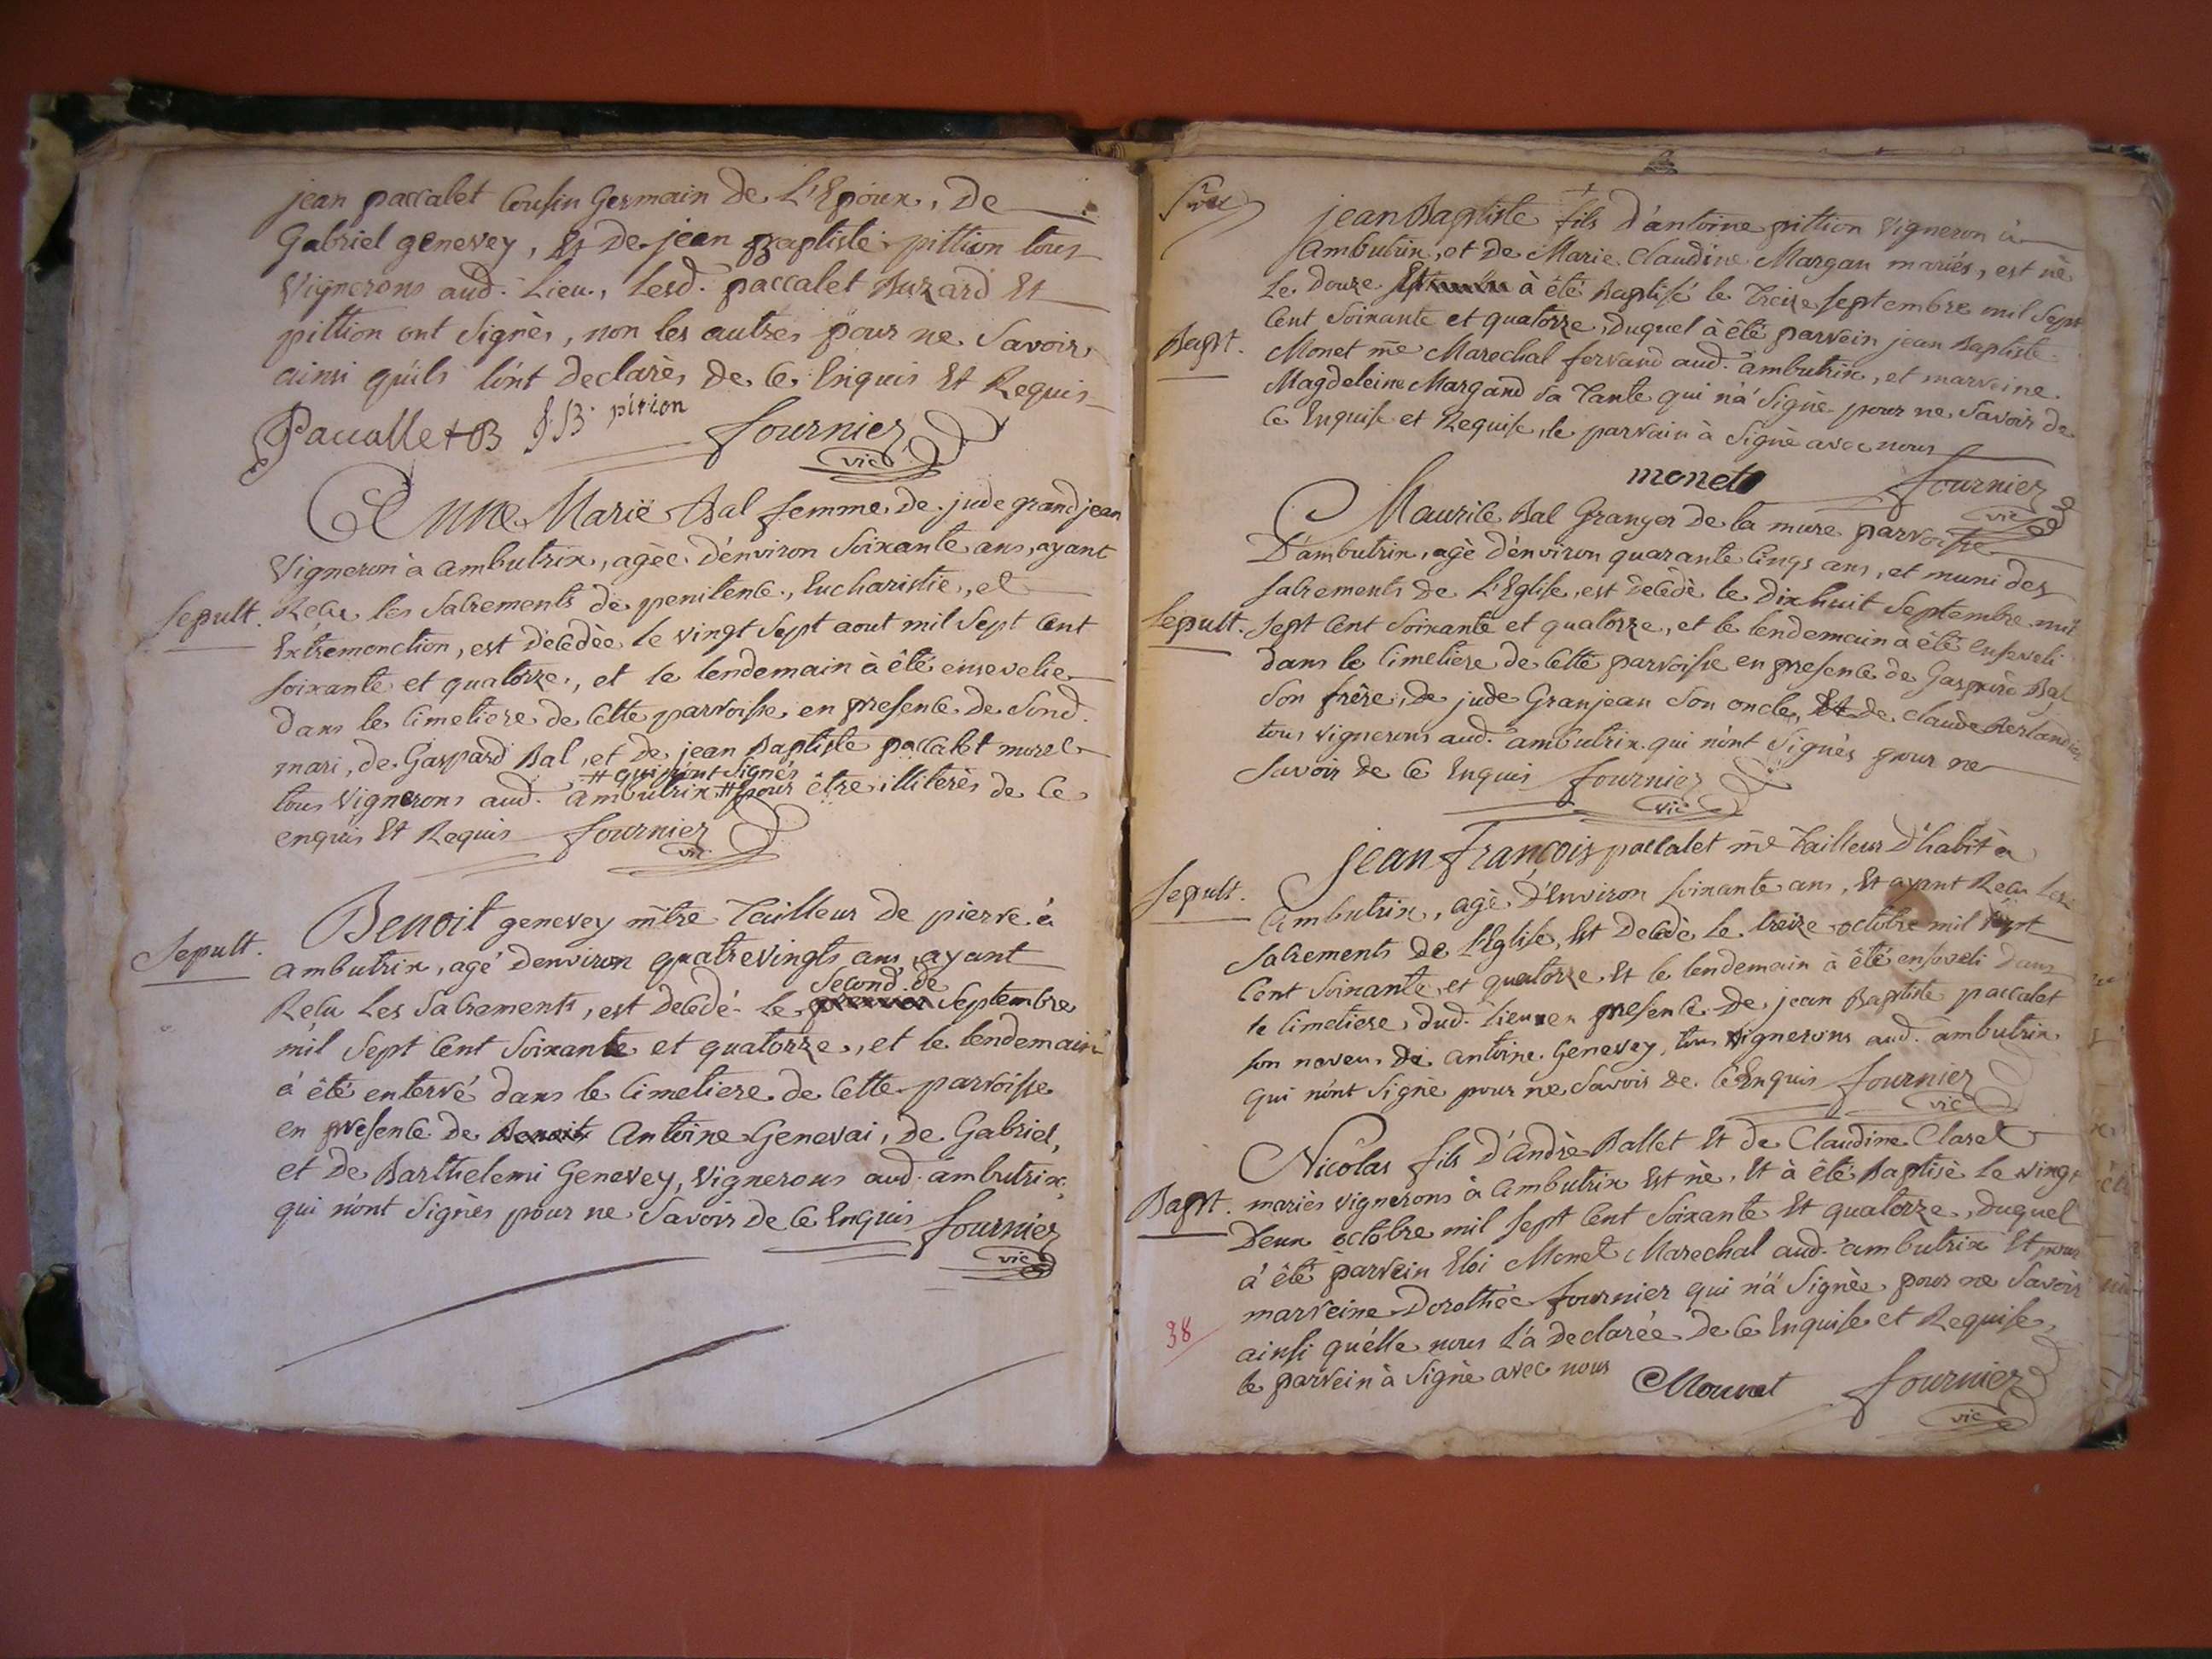 jean paccalet Cousin Germain de L'Epoux, de
Gabriel genevey, Et De jean Baptiste pittion tous
Vignerons aud. Lieu, Lesd. paccalet Buzard Et
pittion ont signès, non les autres pour ne Savoir
ainsi qu'ils l'ont declarès de Ce Enquis Et Requis
Paccallet B J.B. pition fournier
vic
Anne Marie Bal femme de jude grand jean
Vigneron à ambutrix, agèe d'environ Soixante ans, ayant
Sepult. Reçu les Sacrements de penitence, Eucharistie, et
Extremonction, est decedèe le vingt Sept aout mil Sept Cent
soixante et quatorze, et le lendemain à êté ensevelie
dans le Cimetiere de Cette parroisse en presence de Sond.
mari, de Gaspard Bal, et de jean Baptiste paccalet morel
# qui n'ont signés
tous Vignerons aud. ambutrix # pour être illiterès de Ce
enquis Et Requis fournier
vic
Benoit genevey mitre Tailleur de pierre à
Sepult. ambutrix, agé denviron quatrevingts ans, ayant
Second de
Reçu Les Sacrements, est decedé le premier Septembre
mil Sept Cent Soixante et quatorze, et le lendemain
à été enterré dans le Cimetiere de Cette parroisse
en presence de Benoit Antoine Genevai, de Gabriel,
et de Barthelemi Genevey, Vignerons aud. ambutrix,
qui n'ont Signès pour ne Savoir de Ce Enquis fournier
vic
jean Baptiste fils d'antoine pittion Vigneron à
Ambutrix, et de Marie Claudine Margan mariés, est nè
Le douze à êté Baptisé le Treize septembre mil Sept
Cent Soixante et quatorze, duquel à êté parrein jean Baptiste
Bapt. Monet me Marechal ferrand aud. ambutrix, et marreine
Magdeleine Margand Sa Tante qui n'à Signè pour ne Savoir de
Ce Enquise et Requise, le parrain à Signè avec nous
monet fournier
vic
Maurile Bal Granger de la mure parroisse
D'ambutrix, agè d'environ quarante Cinqs ans, et muni des
sacrements de L'Eglise, est decedè le dixhuit Septembre mil
Sepult. Sept Cent Soixante et quatorze, et le lendemain à été enseveli
dans le Cimetiere de Cette parroisse en presence de Gaspard Bal
Son frère, de jude Granjean Son oncle, Et de claude Berlandier
tous Vignerons aud. ambutrix qui n'ont Signès pour ne
Savoir de Ce Enquis fournier
vic
Jean françois paccalet me Tailleur D'habit à
Sepult. Ambutrix, agè d'Environ Soixante ans, Et ayant Reçu Les
Sacrements de L'Eglise, Est Decedè Le treize octobre mil sept
Cent Soixante et quatorze Et le lendemain à êté enseveli dans
le Cimetiere dud. Lieu en presence de jean Baptiste paccalet
son neveu, de antoine Genevey, tous Vignerons aud. ambutrix
qui n'ont Signè pour ne Savoir de Ce Enquis fournier
vic
Nicolas fils d'andrè Ballet Et de Claudine Claret
Bapt. mariès Vignerons à Ambutrix Est nè, Et à êté Baptisè Le vingt
Deux octobre mil Sept Cent Soixante Et quatorze, duquel
à êté parrein Eloi Monet Marechal aud. ambutrix Et pour
marreine Dorothée fournier qui n'à Signèe pour ne Savoir
38 ainsi qu'elle nous l'à declarée de Ce Enquise et Requise,
le parrein à Signè avec nous Mounet fournier
vic